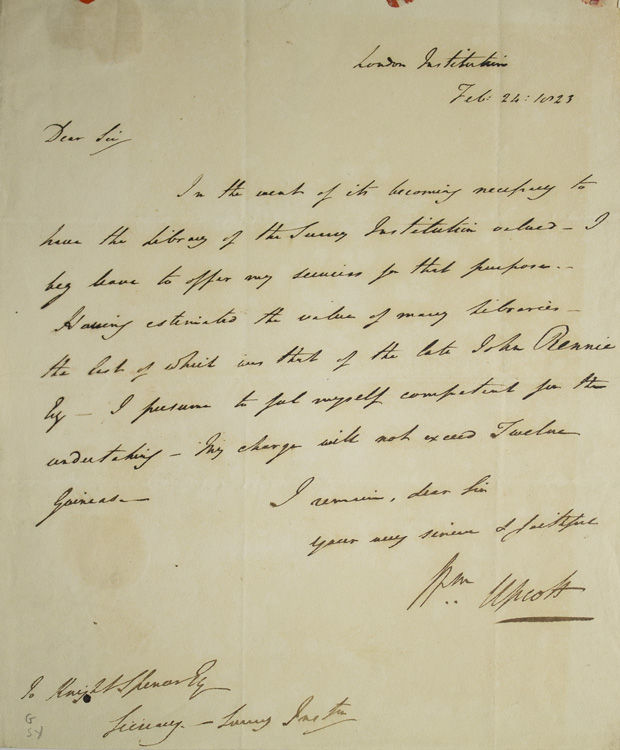 London Institution
Feb: 24: 1823
Dear Sir
In the event of its becoming necessary to
have the Library of the Surrey Institution valued – I
beg leave to offer my services for that purpose. –
Having estimated the value of many Libraries –
the last of which was that of the late John Rennie
Esq – I presume to feel myself competent for the
undertaking – My charge will not exceed Twelve
Guineas. –
I remain, dear Sir
your very sincere & faithful
Wm Upcott
To Knight Spencer Esq
Secretary – Surrey Instn
G